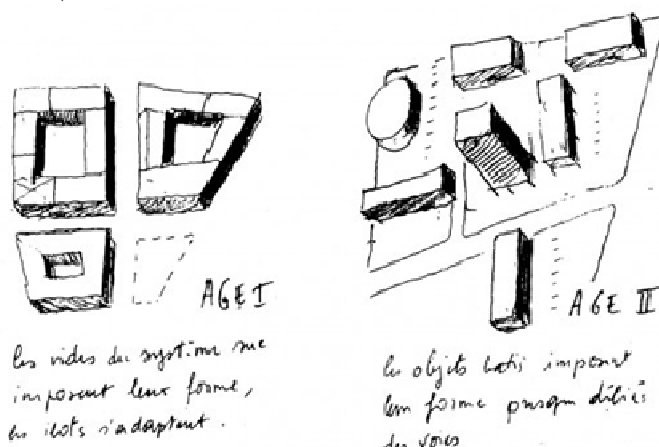 AGE I
les vides du système rue
imposent leur forme,
les ilots s'adaptent.
AGE II
les objets batis imposent
leur forme presque déliés
des voies